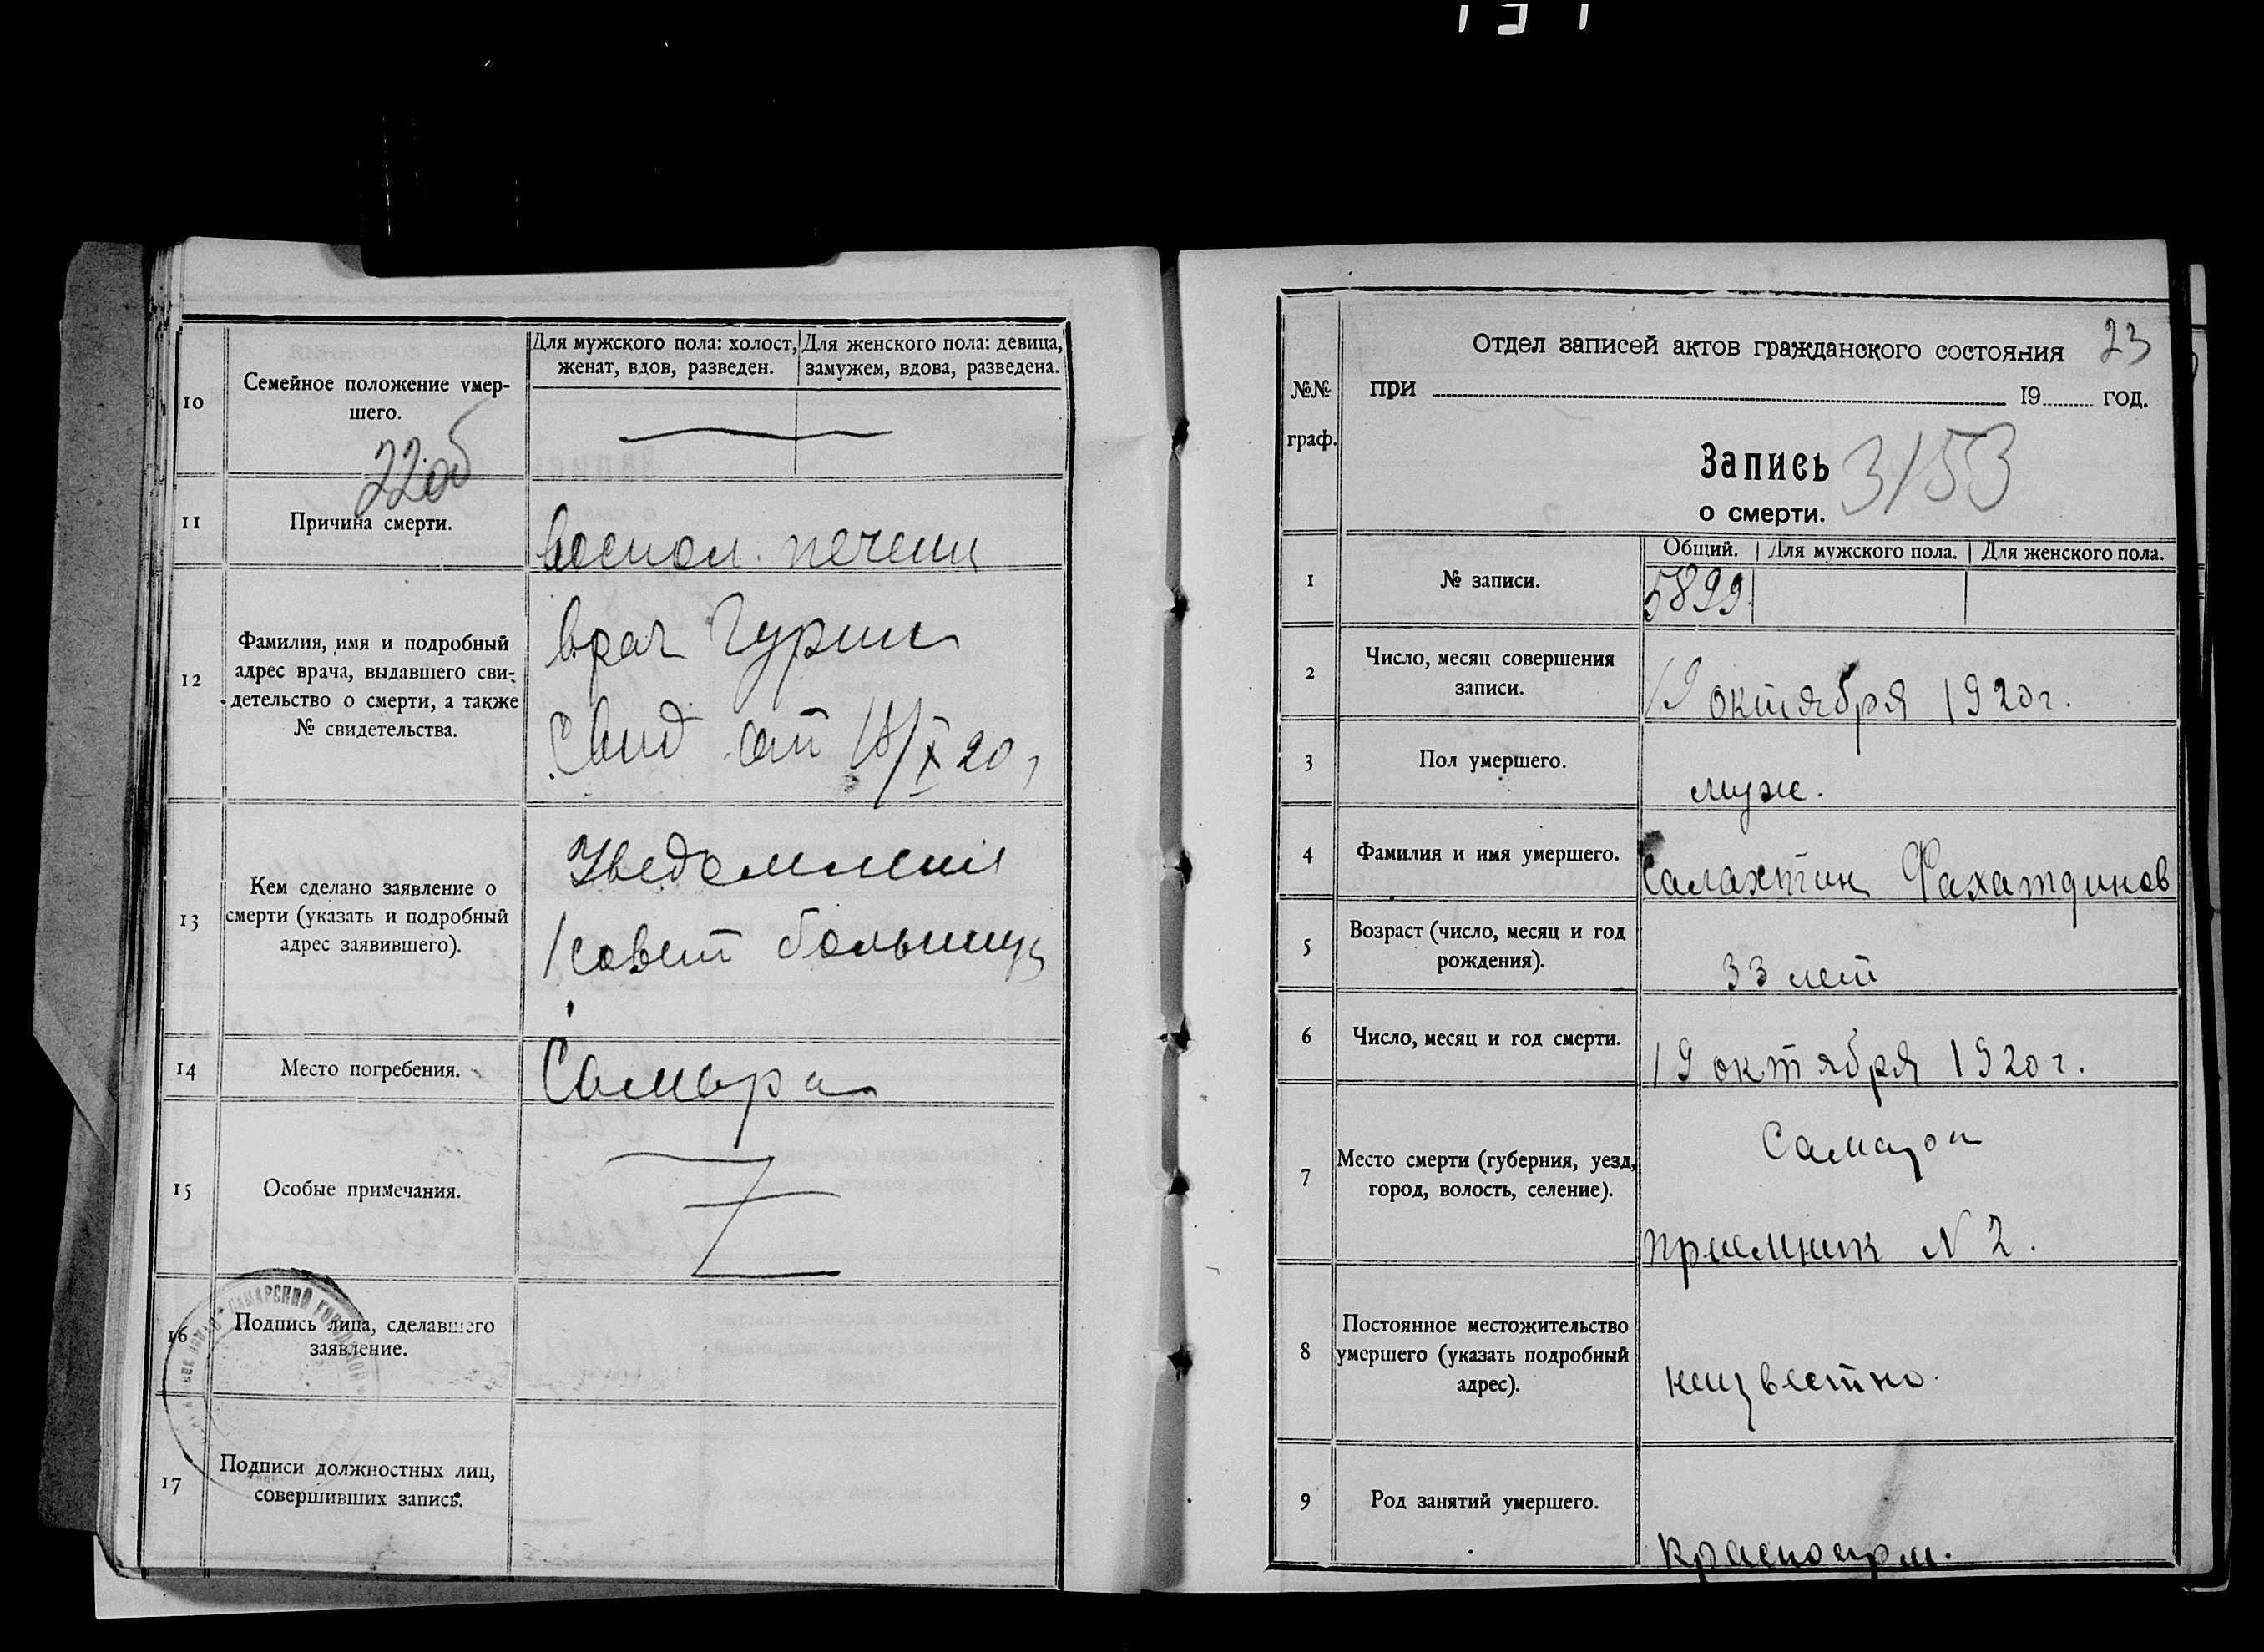 10
Семейное положение умер-
шего.
Для мужского пола: холост,
женат, вдов, разведен.
Для женского пола: девица,
замужем, вдова, разведена.
22об
11
Причина смерти.
воспол. печени
12
Фамилия, имя и подробный
адрес врача, выдавшего сви-
детельство о смерти, а также
№ свидетельства.
врач Гурин
Свид от 18/X 20г
13
Кем сделано заявление о
смерти (указать и подробный
адрес заявившего).
Уведомления
1 совет больницы
14
Место погребения.
Самара
15
Особые примечания.
16
Подпись лица, сделавшего
заявление.
САМАРСКИЙ
17
Подписи должностных лиц,
совершивших запись.
23
№№
граф.
Отдел записей актов гражданского состояния
при 19 год.
Запись 3153
о смерти.
1
№ записи.
Общий. Для мужского пола. Для женского пола.
5899
2
Число, месяц совершения
записи.
19 октября 1920г.
3
Пол умершего.
муж.
4
Фамилия и имя умершего.
Салахтин Фахатдинов
5
Возраст (число, месяц и год
рождения).
33 лет
6
Число, месяц и год смерти.
19 октября 1920г.
7
Место смерти (губерния, уезд,
город, волость, селение).
Самара
приемник N 2.
8
Постоянное местожительство
умершего (указать подробный
адрес).
неизвестно.
9
Род занятий умершего.
красноарм.